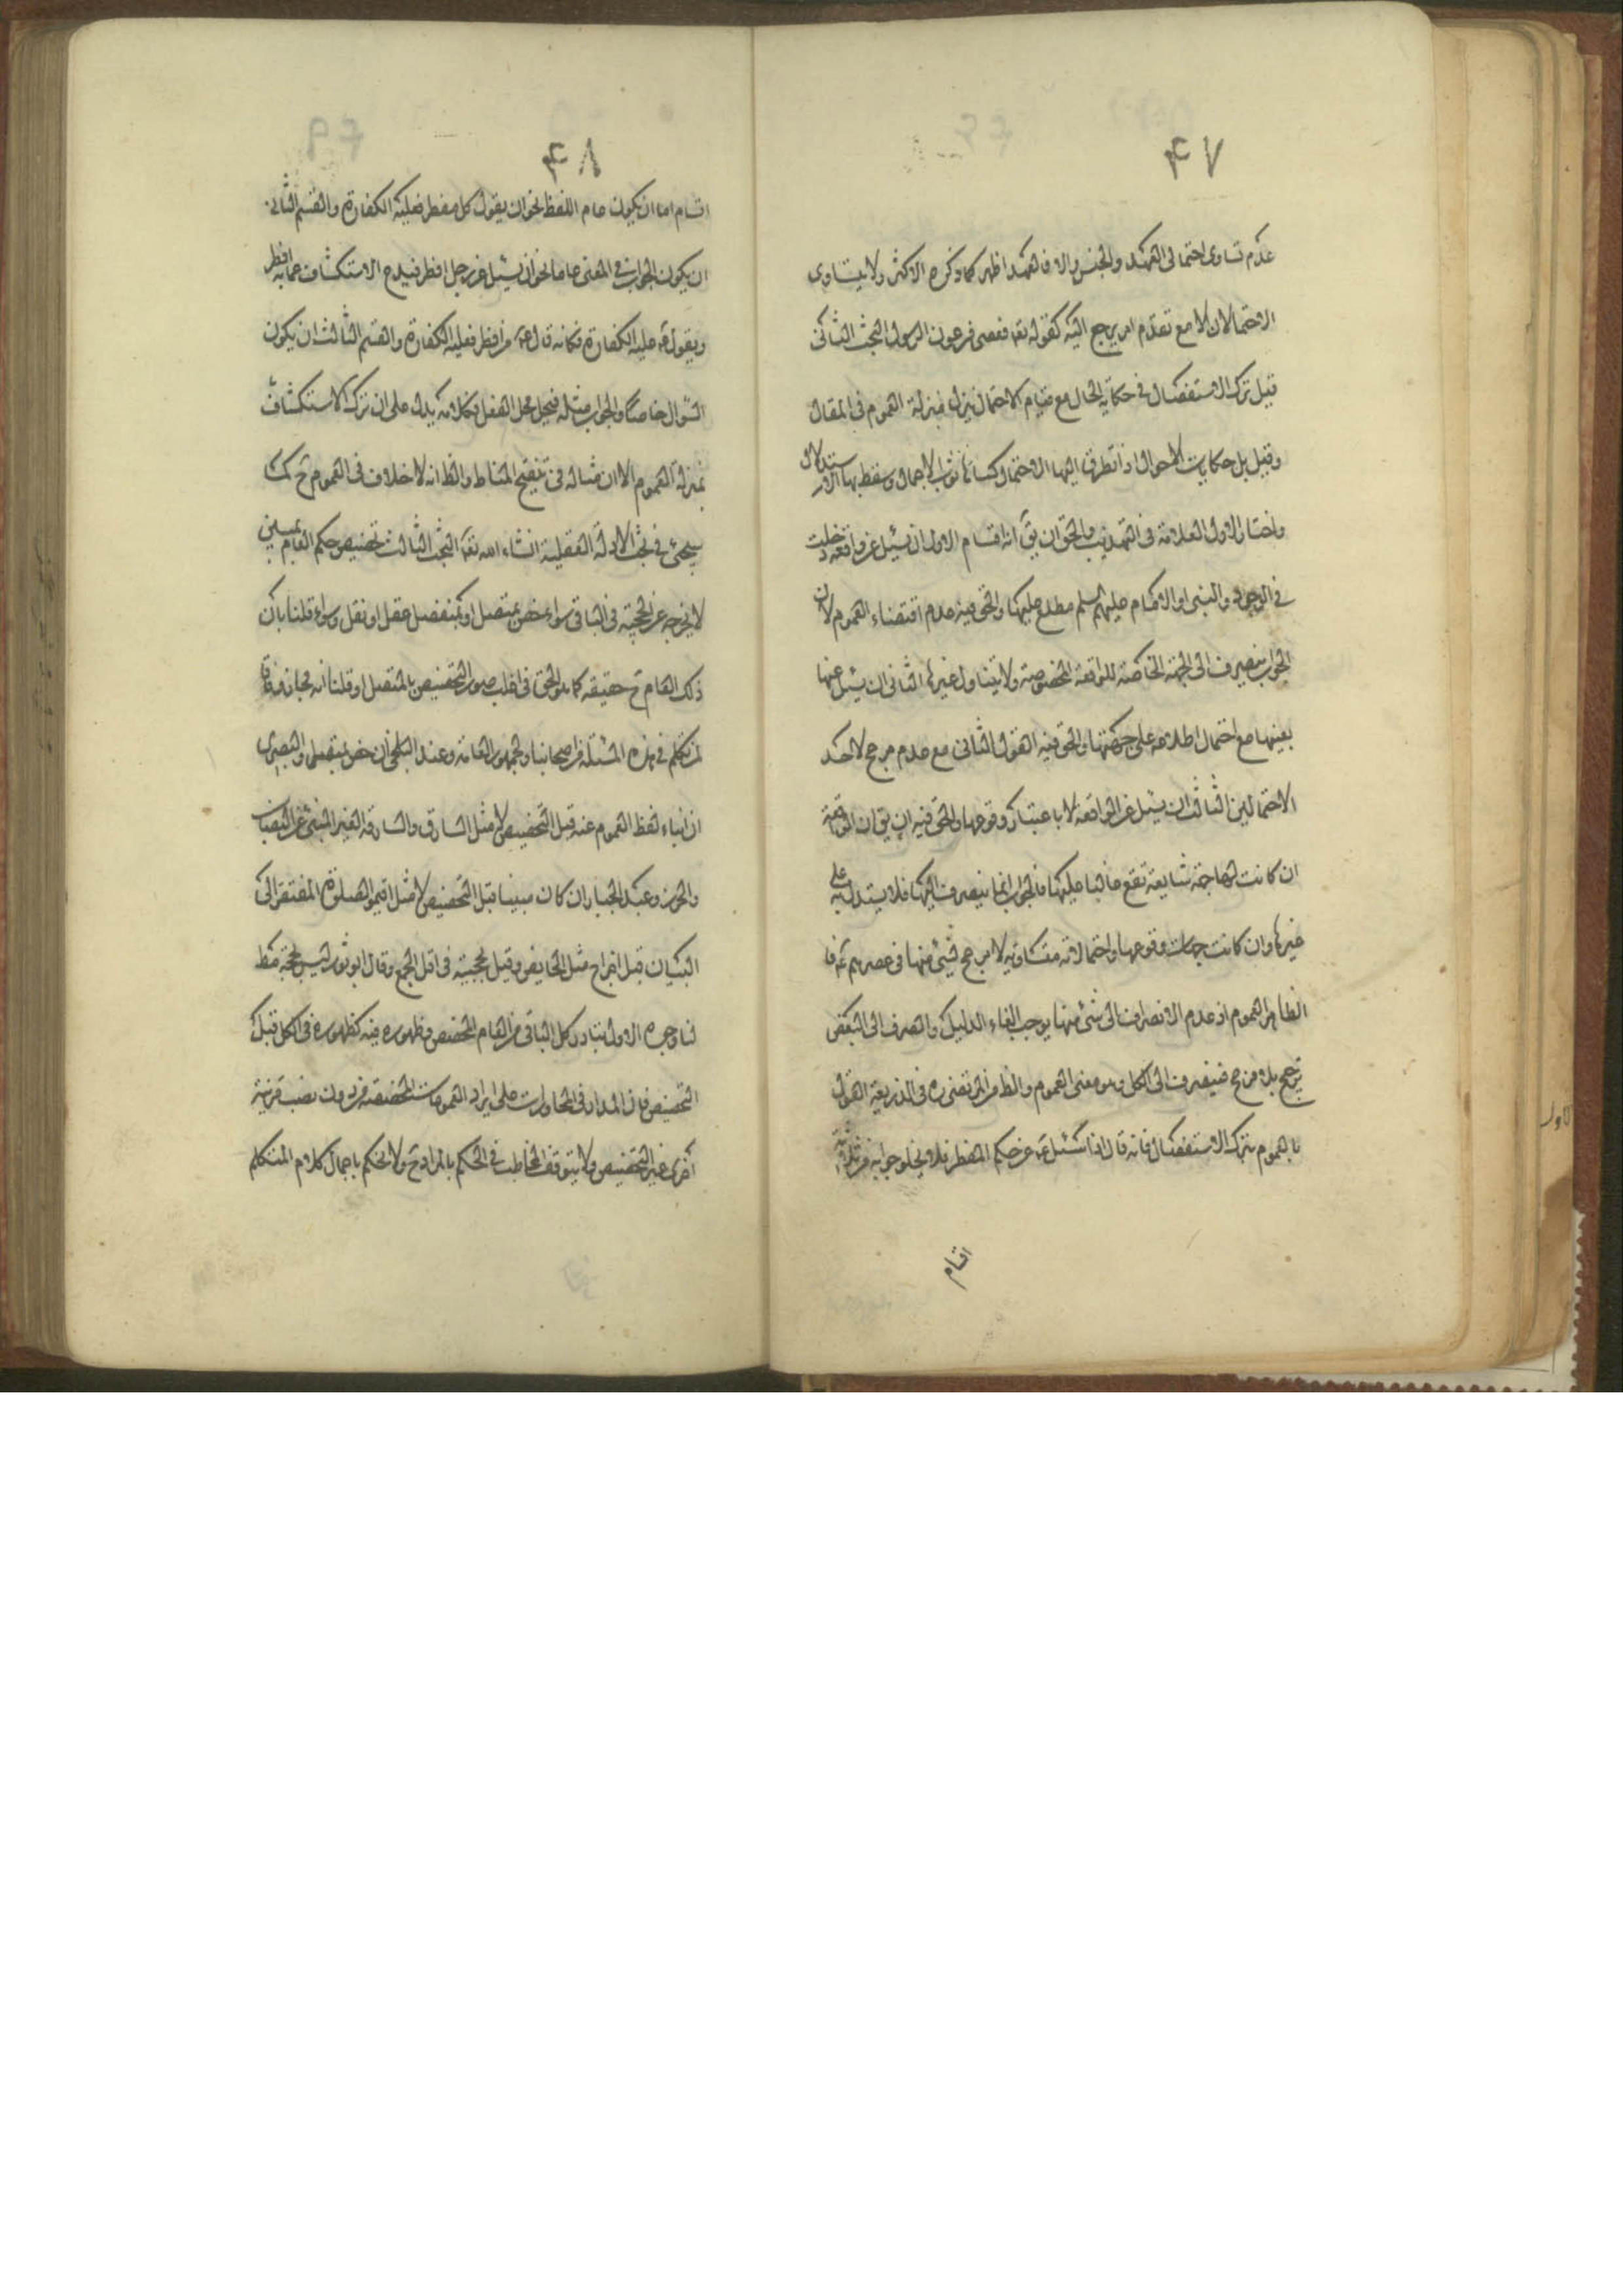 ۴۷
عدم تساوى احتمالى العهد والجنس والا فالعهد اظهر كما ذكره الاكثر ولا يتساوى
الاحتمالان الا مع تقدم امر يرجع اليه كقوله تعا فعصى فرعون الرسول البحث الثانى
قيل ترك الاستفصال فى حكاية الحال مع قيام الاحتمال ينزل منزلة العموم فى المقال
وقيل بل حكايات الاحوال اذا تطرق اليها الاحتمال كساها ثوب الاجمال وسقط بها الاستدلال
واختار الاول العلامة فى التهذيب والحق ان يق انه اقسام الاول ان يسئل عن واقعة دخلت
فى الوجود والنبى او الامام عليهم السلم مطلع عليها والحق فيه عدم اقتضاء العموم لان
الجواب ينصرف الى الجهة الخاصة للواقعة المخصوصة ولا يتناول غيرها الثانى ان يسئل عنها
بعينها مع احتمال اطلاعه على جهتها والحق فيه القول الثانى مع عدم مرجح لاحد
الاحتمالين الثالث ان يسئل عن الواقعة لا باعتبار وقوعها والحق فيه ان يق ان الواقعة
ان كانت لها جهة شايعة تقع غالبا عليها فالجواب انما ينصرف اليها فلا يستدل به على
غيرها وان كانت جهات وقوعها واحتمالاته متساوية لا مرجح لشئ منها فى عصرهم ع فا
الظاهر العموم اذ عدم الانصراف الى شئ منها يوجب الغاء الدليل والصرف الى البعض
ترجيح بلا مرجح فينصرف الى الكل وهو معنى العموم والظ من المرتضى ره فى الذريعة القول
بالعموم بترك الاستفصال فانه قال اذا سئل ع عن حكم المفطر فلا يخلو جوابه من ثلاثة
اقسام
۴۸
اقسام اما ان يكون عام اللفظ نحو ان يقول كل مفطر فعليه الكفارة والقسم الثانى
ان يكون الجواب فى المعنى عاما نحو ان يسئل عن رجل افطر فيدع الاستكشاف عما به افطر
ويقول ع عليه الكفارة فكانه قال ع من افطر فعليه الكفارة والقسم الثالث ان يكون
السؤال خاصا والجواب مثله فيحل محل الفعل وكلامه يدل على ان ترك الاستكشاف
بمنزلة العموم الا ان مثاله فى تنقيح المناط والظ انه لا خلاف فى العموم ح كما
سيجئ فى بحث الادلة العقلية انشاء الله تعا البحث الثالث تخصيص حكم العام بمبين
لا يخرجه عن الحجية فى الباقى سواء خص بمتصل او بمنفصل عقل او نقل وسواء قلنا بان
ذلك العام ح حقيقة كما هو الحق فى اغلب صور التخصيص بالمتصل او قلنا انه مجاز وفاقا
لمن تكلم فى هذه المسئلة من اصحابنا والجمهور العامة وعند البلخى ان خص بمتصل والبصرى
ان انباء لفظ العموم عنه قبل التخصيص لا مثل السارق والسارقة الغير المنبئ عن النصاب
والحرز وعبد الجبار ان كان مبينا قبل التخصيص لا مثل اقيموا الصلوة المفتقر الى
البيان قبل اخراج مثل الحايض وقيل بحجيته فى اقل الجمع وقال ابو ثور ليس بحجة مط
لنا وجوه الاول تبادر كل الباقى من العام المخصص وظهوره فيه كظهوره فى الكل قبل
التخصيص فان المدار فى المحاورات على ايراد العمومات المخصصة من دون نصب قرينة
اخرى غير التخصيص ولا يتوقف المخاطب فى الحكم بالمراد ح ولا يحكم باجمال كلام المتكلم